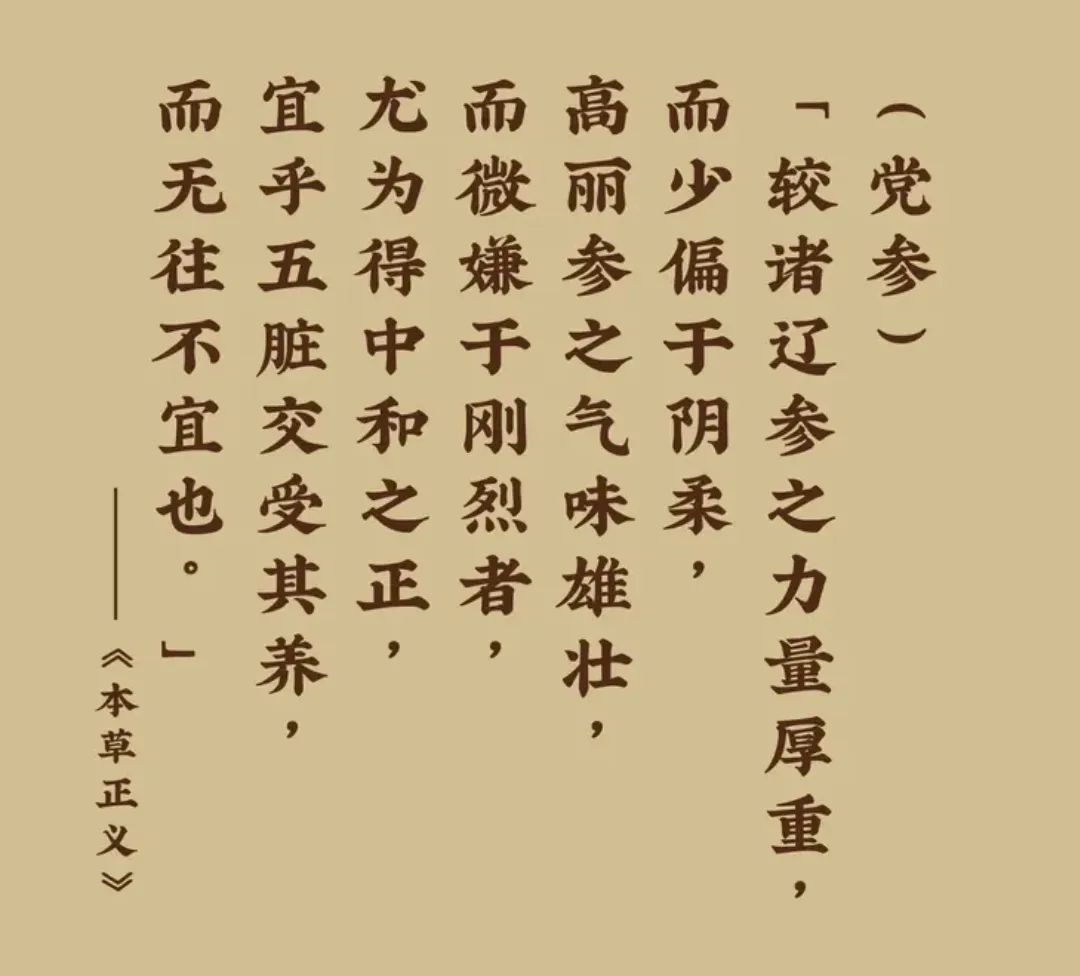 （党参）
「较诸辽参之力量厚重，
而少偏于阴柔，
高丽参之气味雄壮，
而微嫌于刚烈者，
尤为得中和之正，
宜乎五脏交受其养，
而无往不宜也。」
——《本草正义》